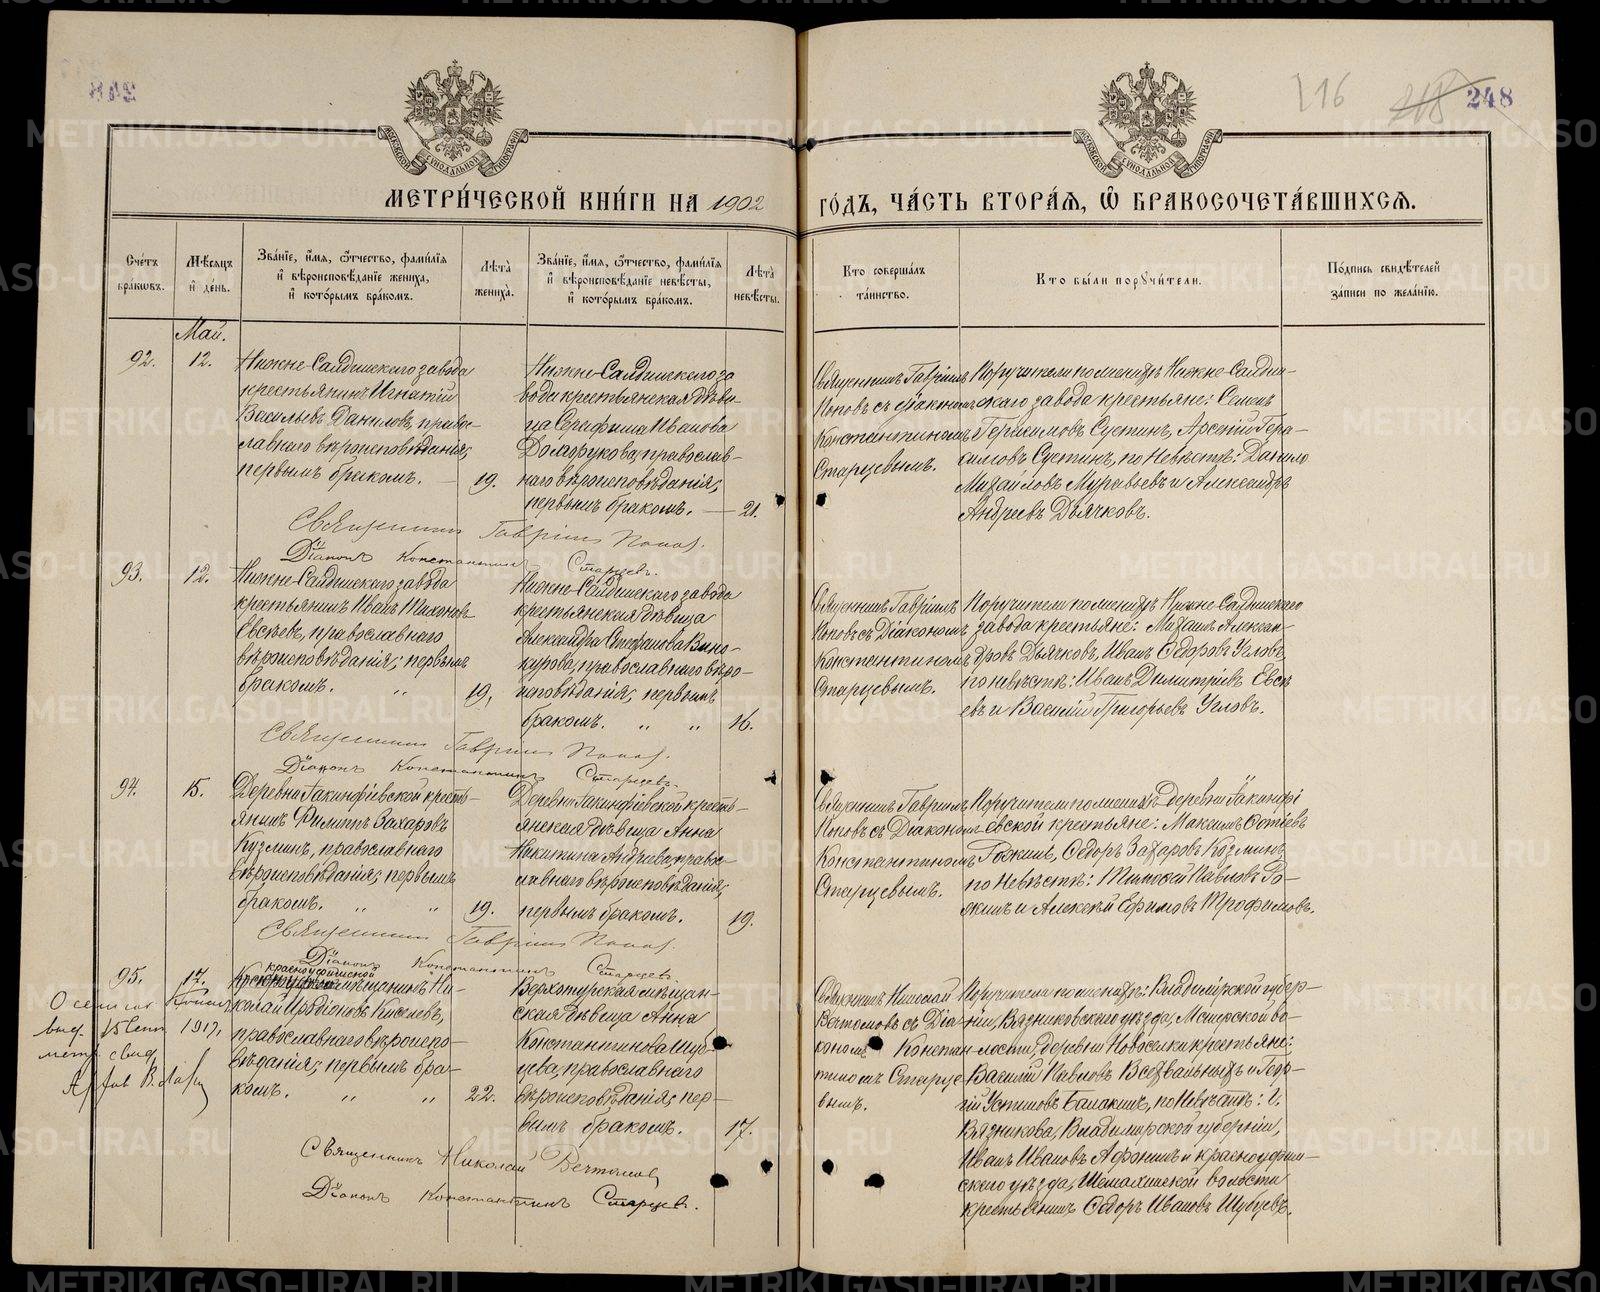 248
116
218
248
МОСКОВСКОЙ СѴНОДАЛЬНОЙ ТИПОГРАФІИ
МОСКОВСКОЙ СѴНОДАЛЬНОЙ ТИПОГРАФІИ
МЕТРИ́ЧЕСКОЙ КНИ́ГИ НА 1902 ГО́ДЪ, ЧА́СТЬ ВТОРА́Я, Ѽ БРАКОСОЧЕТА́ВШИХСЯ.
Сче́тъ бра́кѡвъ.
Мѣ́сяцъ и҆ де́нь.
Зва́нїе, и҆́мя, ѻ҆́тчество, фами́лїя и҆ вѣроисповѣ́данїе жениха̀, и҆ кото́рымъ бра́комъ.
Лѣта̀ жениха̀.
Зва́нїе, и҆́мя, ѻ҆́тчество, фами́лїя и҆ вѣроисповѣ́данїе невѣ́сты, и҆ кото́рымъ бра́комъ.
Лѣта̀ невѣ́сты.
Кто соверша́лъ та́инство.
Кто бы́ли порꙋчи́тели.
По́дпись свидѣ́телей за́писи по жела́нїю.
Май.
92.
12.
Нижне-Салдинскаго завода
крестьянинъ Игнатій
Васильевъ Даниловъ, право-
славнаго вѣроисповѣданія;
первымъ бракомъ. —
19.
Нижне-Салдинскаго за
вода крестьянская дѣви
ца Серафима Иванова
Долгорукова, православ-
наго вѣроисповѣданія;
первымъ бракомъ. —
21.
Священникъ Гавріилъ
Поповъ съ діакономъ
Константиномъ
Старцевымъ.
Поручители по женихѣ Нижне-Салдин-
скаго завода крестьяне: Семенъ
Герасимовъ Сустинъ, Арсеній Гера-
симовъ Сустинъ, по Невѣстѣ: Данило
Михайловъ Муравьевъ и Александръ
Андреевъ Дьячковъ.
Священникъ Гавріилъ Поповъ.
Діаконъ Константинъ Старцевъ.
93.
12.
Нижне-Салдинскаго завода
крестьянинъ Иванъ Тихоновъ
Евсѣевъ, православнаго
вѣроисповѣданія; первымъ
бракомъ. „
19,
Нижне-Салдинскаго завода
крестьянская дѣвица
Александра Стефанова Вино-
курова, православнаго вѣро-
исповѣданія; первымъ
бракомъ. „ „
16.
Священникъ Гавріилъ
Поповъ съ Діакономъ
Константиномъ
Старцевымъ.
Поручители по женихѣ Нижне-Салдинскаго
завода крестьяне: Михаилъ Алексан-
дровъ Дьячковъ, Иванъ Ѳедоровъ Угловъ,
по невѣстѣ: Иванъ Димитріевъ Евсѣ
евъ и Василій Григорьевъ Угловъ.
Священникъ Гавріилъ Поповъ.
Діаконъ Константинъ Старцевъ.
94.
15.
Деревни Акинфіевской кресть-
янинъ Филиппъ Захаровъ
Кузминъ, православнаго
вѣроисповѣданія; первымъ
бракомъ. „ „
19.
Деревни Акинфіевской кресть-
янская дѣвица Анна
Никитина, правос-
лавнаго вѣроисповѣданія;
первымъ бракомъ.
19.
Священникъ Гавріилъ
Поповъ съ Діакономъ
Константиномъ
Старцевымъ.
Поручители по женихѣ деревни Акинфі
евской крестьяне: Максимъ
Ѳедоръ Захаровъ Козминъ
по Невѣстѣ: Тимоѳей Павловъ
и Алексѣй Ефимовъ Трофимовъ.
Священникъ Гавріилъ Поповъ.
Діаконъ Константинъ Старцевъ
95.
17.
1917,
красноуфимской
мѣщанинъ Ни-
колай Иродіоновъ Киселевъ,
православнаго вѣроиспо-
вѣданія; первымъ бра-
комъ. „ „
22.
Верхотурская мѣщан-
ская дѣвица Анна
Константинова Шуб-
цева, православнаго
вѣроисповѣданія; пер-
вымъ бракомъ.
17.
Священникъ Николай
Бечтомовъ съ Діа-
кономъ Констан-
тиномъ Старце-
вымъ.
Поручители по женихѣ: Владимірской губер-
ніи, Вязниковскаго уѣзда, Мстерской во-
лости, деревни Новоселки крестьяне:
Василій Павловъ и Геор-
гій Устиновъ Балакинъ, по Невѣстѣ: г.
Вязникова, Владимірской губерніи,
Иванъ Ивановъ Афонинъ и красноуфим-
скаго уѣзда, Шемахинской волости
крестьянинъ Ѳедоръ Ивановъ Шубцевъ.
Священникъ Николай Бечтомовъ
Діаконъ Константинъ Старцевъ.
METRIKI.GASO-URAL.RU